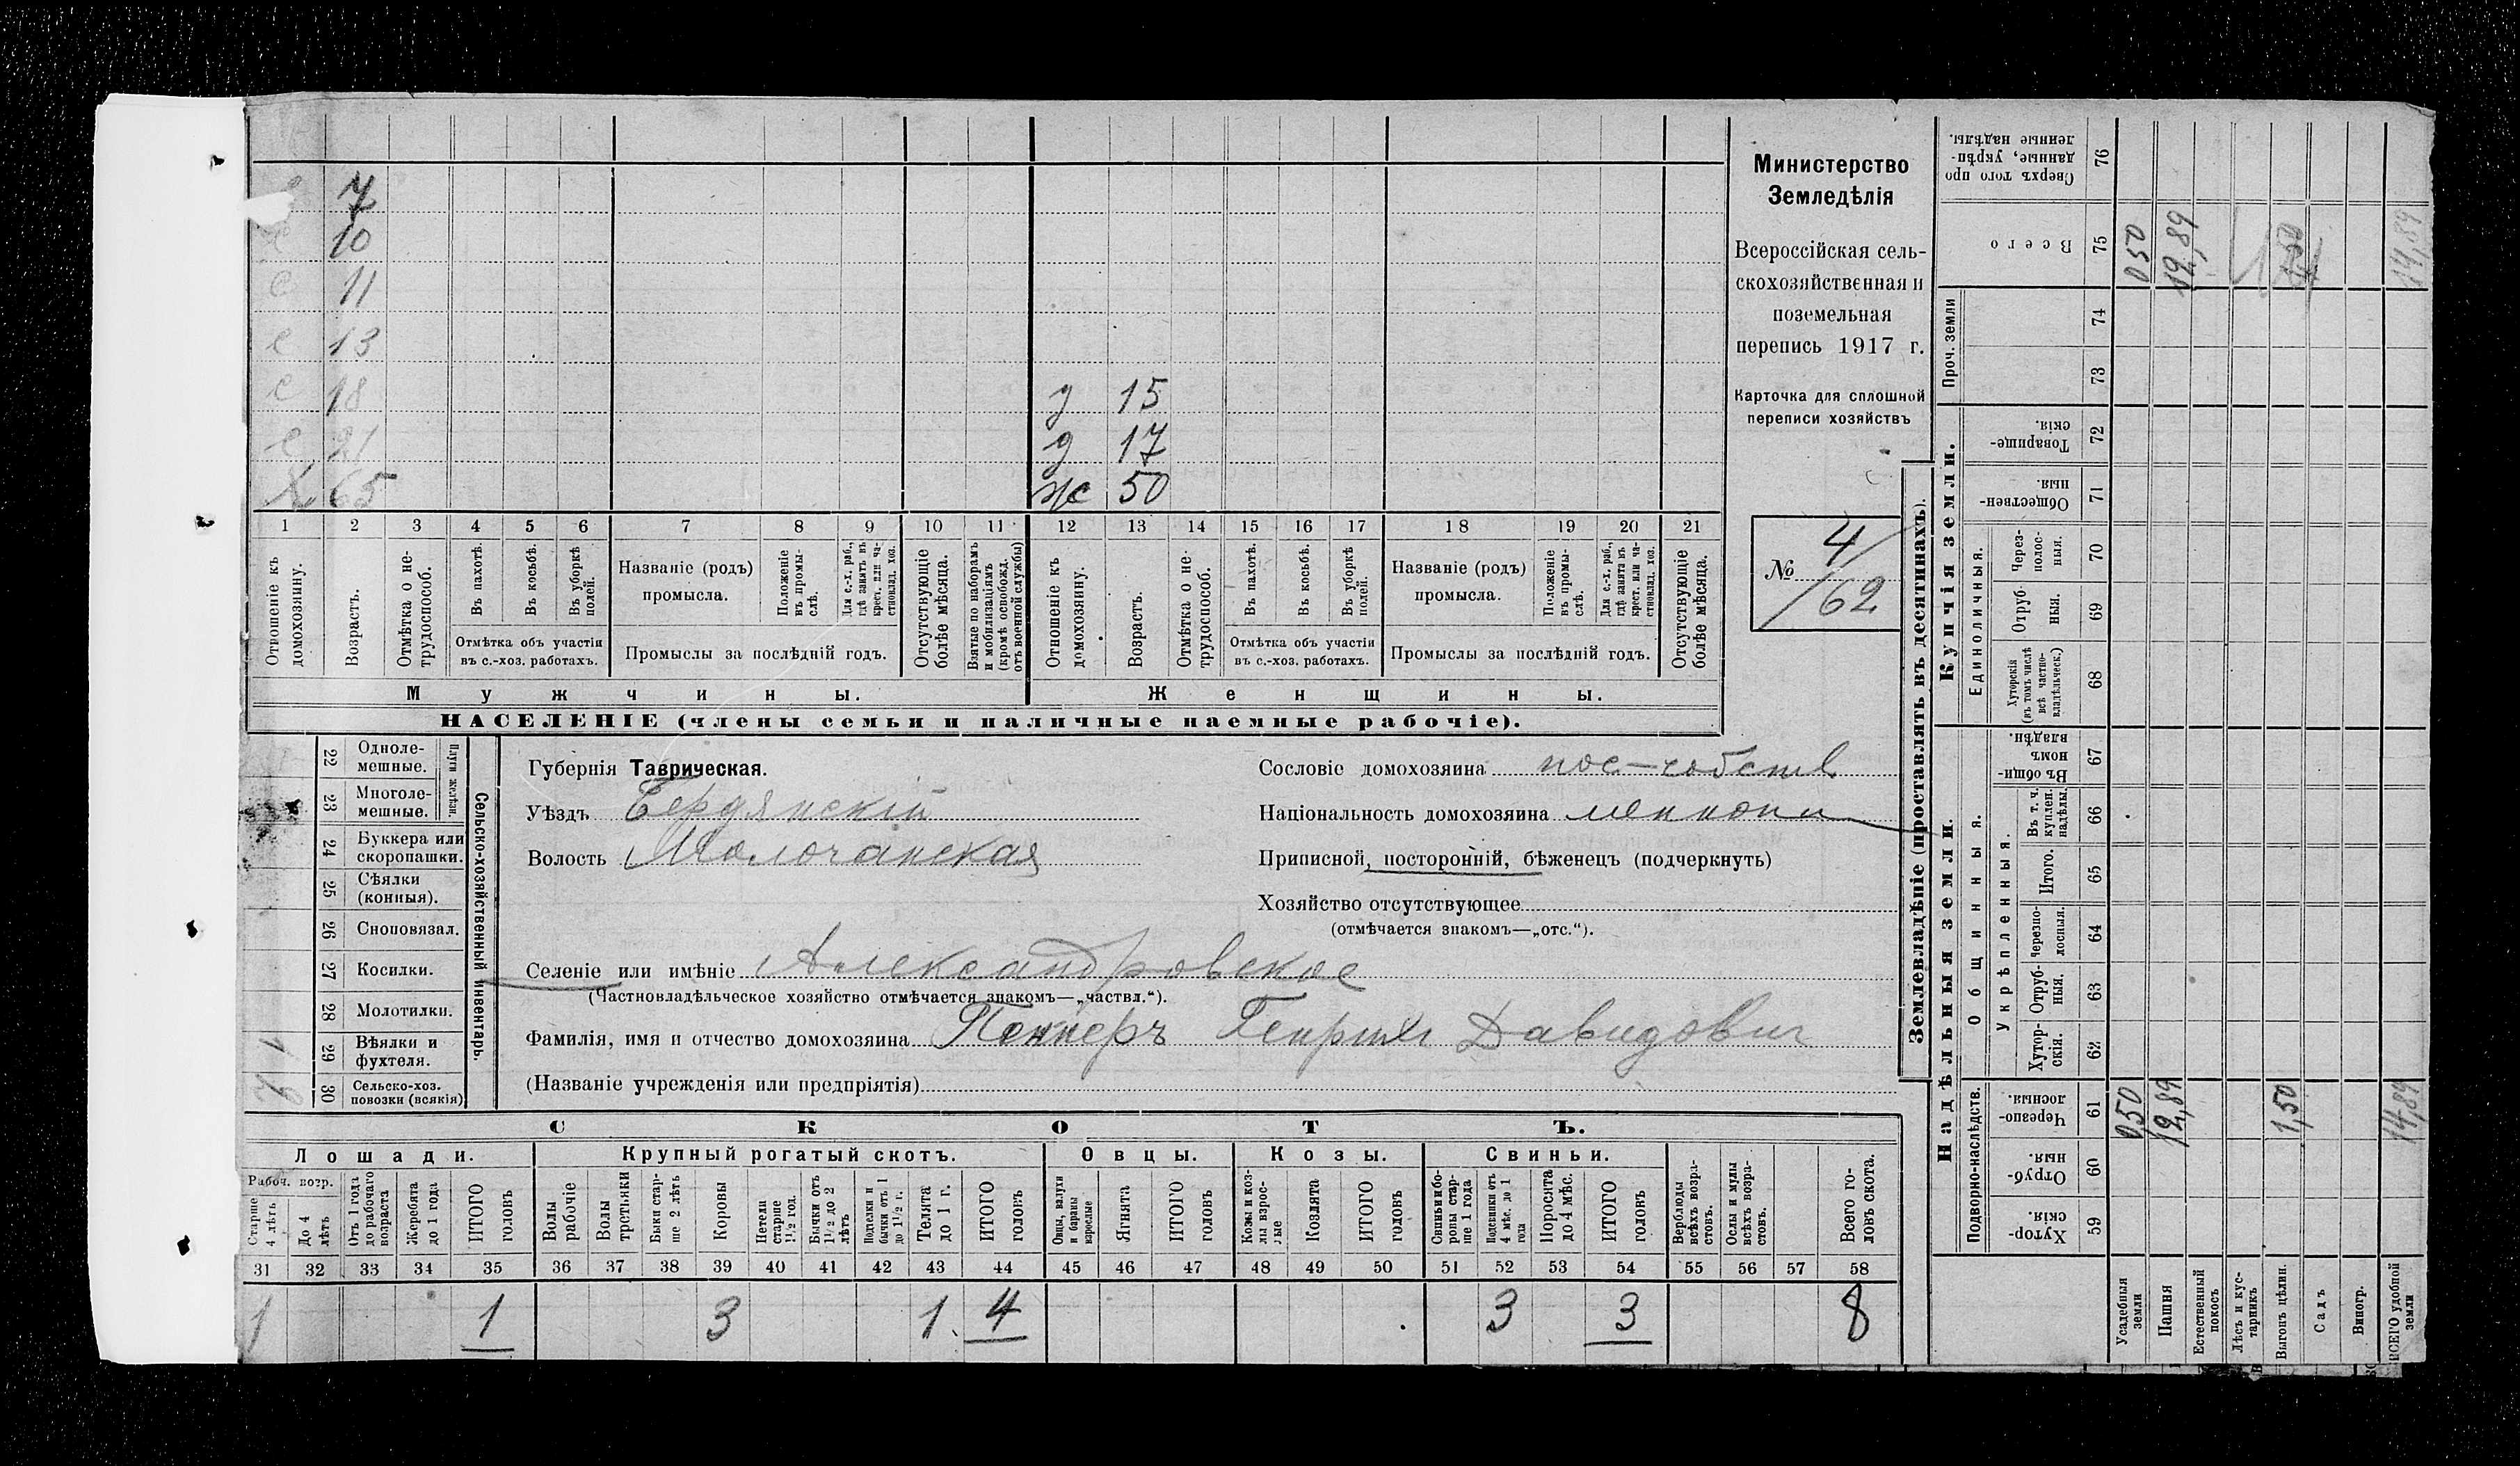 7
10
с 11
с 13
с 18 д 15
с 21 д 17
х 65 ж 50
1 2 3 4 5 6 7 8 9 10 11 12 13 14 15 16 17 18 19 20 21
Отношеніе къ домохозяину.
Возрастъ.
Отмѣтка о не-трудоспособ.
Въ пахотѣ.
Въ косьбѣ.
Въ уборкѣ полей.
Отмѣтка объ участіи
въ с.-хоз. работахъ.
Названіе (родъ)
промысла.
Положеніе въ промы-слѣ.
Для с.-х. раб., гдѣ занятъ въ крест. или ча-стновлад. хоз.
Промыслы за послѣдній годъ.
Отсутствующіе болѣе мѣсяца.
Взятые по наборамъ и мобилизаціямъ (кромѣ освобожд. отъ военной службы)
Отношеніе къ домохозяину.
Возрастъ.
Отмѣтка о не-трудоспособ.
Въ пахотѣ.
Въ косьбѣ.
Въ уборкѣ полей.
Отмѣтка объ участіи
въ с.-хоз. работахъ.
Названіе (родъ)
промысла.
Положеніе въ промы-слѣ.
Для с.-х. раб., гдѣ занята въ крест. или ча-стновлад. хоз.
Промыслы за послѣдній годъ.
Отсутствующіе болѣе мѣсяца.
Мужчины. Женщины.
НАСЕЛЕНІЕ (члены семьи и наличные наемные рабочіе).
Министерство
Земледѣлія
Всероссійская сель-
скохозяйственная и
поземельная
перепись 1917 г.
Карточка для сплошной
переписи хозяйствъ
№ 4/62
22 Одноле-мешные.
23 Многоле-мешные.
Плуги желѣзн.
24 Буккера или скоропашки.
25 Сѣялки (конныя).
26 Сноповязал.
27 Косилки.
28 Молотилки.
29 Вѣялки и фухтеля. 1
30 Сельско-хоз. повозки (всякія)
Сельско-хозяйственный инвентарь.
Губернія Таврическая.
Уѣздъ Бердянскій
Волость Молочанская
Сословіе домохозяина пос-собств
Національность домохозяина меннони
Приписной, посторонній, бѣженецъ (подчеркнуть)
Хозяйство отсутствующее
(отмѣчается знакомъ—„отс.“).
Селеніе или имѣніе Александровское
(Частновладѣльческое хозяйство отмѣчается знакомъ—„частвл.“).
Фамилія, имя и отчество домохозяина Пеннеръ Генрихъ Давидович
(Названіе учрежденія или предпріятія)
СКОТЪ.
Лошади. Крупный рогатый скотъ. Овцы. Козы. Свиньи.
Рабоч. возр.
Старше 4 лѣтъ
До 4 лѣтъ
Отъ 1 года до рабочаго возраста
Жеребята до 1 года
ИТОГО головъ
Волы рабочіе
Волы третьяки
Быки стар-ше 2 лѣтъ
Коровы
Нетели старше 1½ год.
Бычки отъ 1½ до 2 лѣтъ
Подтелки и бычки отъ 1 до 1½ г.
Телята до 1 г.
ИТОГО головъ
Овцы, валухи и бараны взрослые
Ягнята
ИТОГО головъ
Козы и коз-лы взрос-лые
Козлята
ИТОГО головъ
Свиньи и бо-ровы стар-ше 1 года
Подсвинки отъ 4 мѣс. до 1 года
Поросята до 4 мѣс.
ИТОГО головъ
Верблюды всѣхъ возра-стовъ.
Ослы и мулы всѣхъ возра-стовъ.
Всего го-ловъ скота.
31 32 33 34 35 36 37 38 39 40 41 42 43 44 45 46 47 48 49 50 51 52 53 54 55 56 57 58
1 1 3 1 4 3 3 8
Землевладѣніе (проставлять въ десятинахъ).
Купчія земли.
Надѣльныя земли.
Сверхъ того про данные, укрѣп-ленные надѣлы. 76
Всего 75 0,50 12,89 1,50 14,89
Проч. земли 74
73
Товарище-скія. 72
Обществен-ныя. 71
Единоличныя.
Через-полос-ныя. 70
Отруб-ныя. 69
Хуторскія (въ томъ числѣ всѣ частно-владѣльческ.) 68
Общинныя.
Въ общин-номъ владѣн. 67
Укрѣпленныя.
Въ т. ч. куплен. надѣлы. 66
Итого. 65
Черезпо-лосныя. 64
Отруб-ныя. 63
Хутор-скія. 62
Подворно-наслѣдств.
Черезпо-лосныя. 61 0,50 12,89 1,50 14,89
Отруб-ныя. 60
Хутор-скія. 59
Усадебныя земли
Пашня
Естественный покосъ
Лѣсъ и кус-тарникъ
Выгонъ цѣлин.
Садъ
Виногр.
ВСЕГО удобной земли